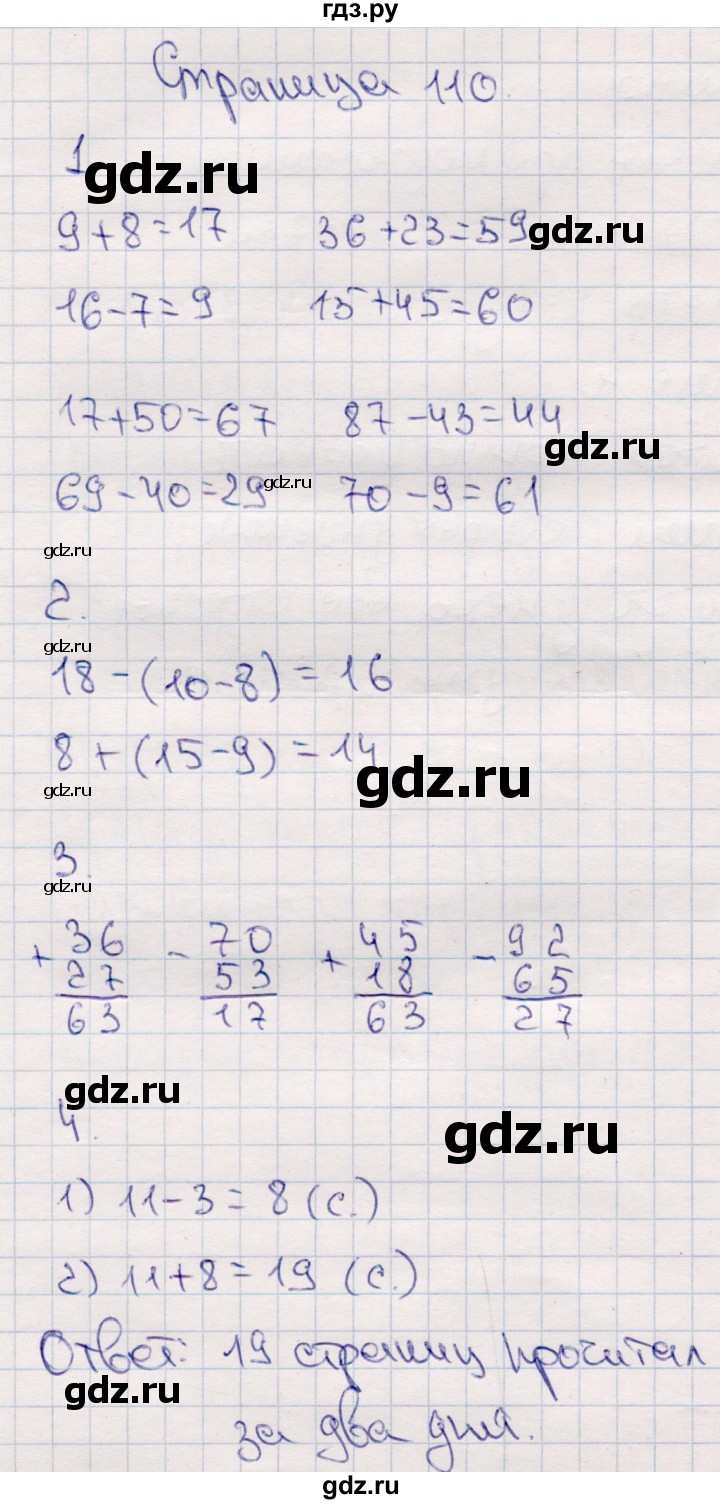 гдз.ру
Страница 110.
1 gdz.ru
9+8=17 36+23=59 gdz.ru
16-7=9 15+45=60
17+50=67 87-43=44
gdz.ru
69-40=29 gdz.ru 70-9=61
gdz.ru
2.
gdz.ru
18-(10-8)=16
8+(15-9)=14
gdz.ru
gdz.ru
3.
gdz.ru
+ 36 - 70 + 45 - 92
27 53 18 65
63 17 63 27
gdz.ru
4.
gdz.ru
1) 11-3=8 (с.)
2) 11+8=19 (с.)
Ответ: 19 страниц прочитал
gdz.ru
за два дня.
gdz.ru